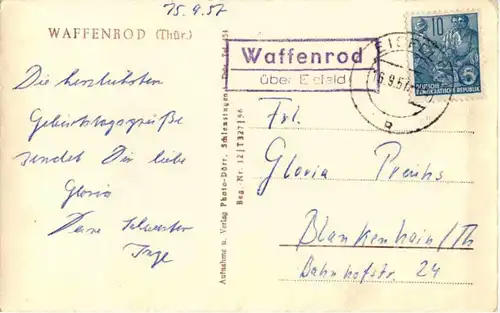 15.9.57
WAFFENROD (Thür.)
Die herzlichsten
Geburtstagsgrüße
sendet Dir liebe
Gloria
Deine Schwester
Inge
Aufnahme u. Verlag Photo-Dörr, Schleusingen
Reg.-Nr. 12|T327|56
Waffenrod
über Eisfeld
EISFELD
16.9.57
10
DEUTSCHE
DEMOKRATISCHE REPUBLIK
Frl.
Gloria
Blankenhain/Th
Bahnhofstr. 24